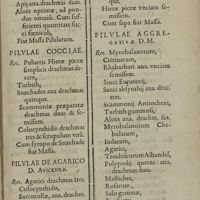 Apij ana.drachmas duas.
Aloës optimæ, ad pon-
dus omniũ. Cum suf-
ficienti quantitate suc-
ci fœniculi,
Fiat Massa Pilularum.
PILVLAE COCCIAE.
Rec. Pulueris Hieræ pictæ
simplicis drachmas de-
cem,
Turbith,
Stœchados ana drachmas
quinque.
Scammonij præparatæ
drachmas duas & se-
missem.
Colocynthidis drachmas
tres & scrupulum vnũ.
Cum syrupo de Stœchade
fiat Massa.
PILVLAE DE AGARICO
D. AVICENNÆ.
Rec. Agarici drachmas tres.
Colocynthidis,
Sarcocollæ, ana. drachm.
que.
Hieræ pictæ vnciam se-
missem.
Cum sapa fiat Massa.
PILVLAE AGGRE-
GATIVÆ D. M.
Rec. Myrobalanorum,
Citrinarum,
Rhabarbari ana. vnciam
semissem.
Succi Eupatorij,
Succi absynthij ana. drac.
tres.
Scammonij Antiocheni,
Turbith gummosi,
Aloës ana. drachm. sex.
Myrobalanorum Che-
bularum,
Indarum,
Agarici,
Trochiscorum Alhandal,
Polypodij querni ana.
drachmas duas.
Mastiches,
Rosarum,
Salis gemmæ,